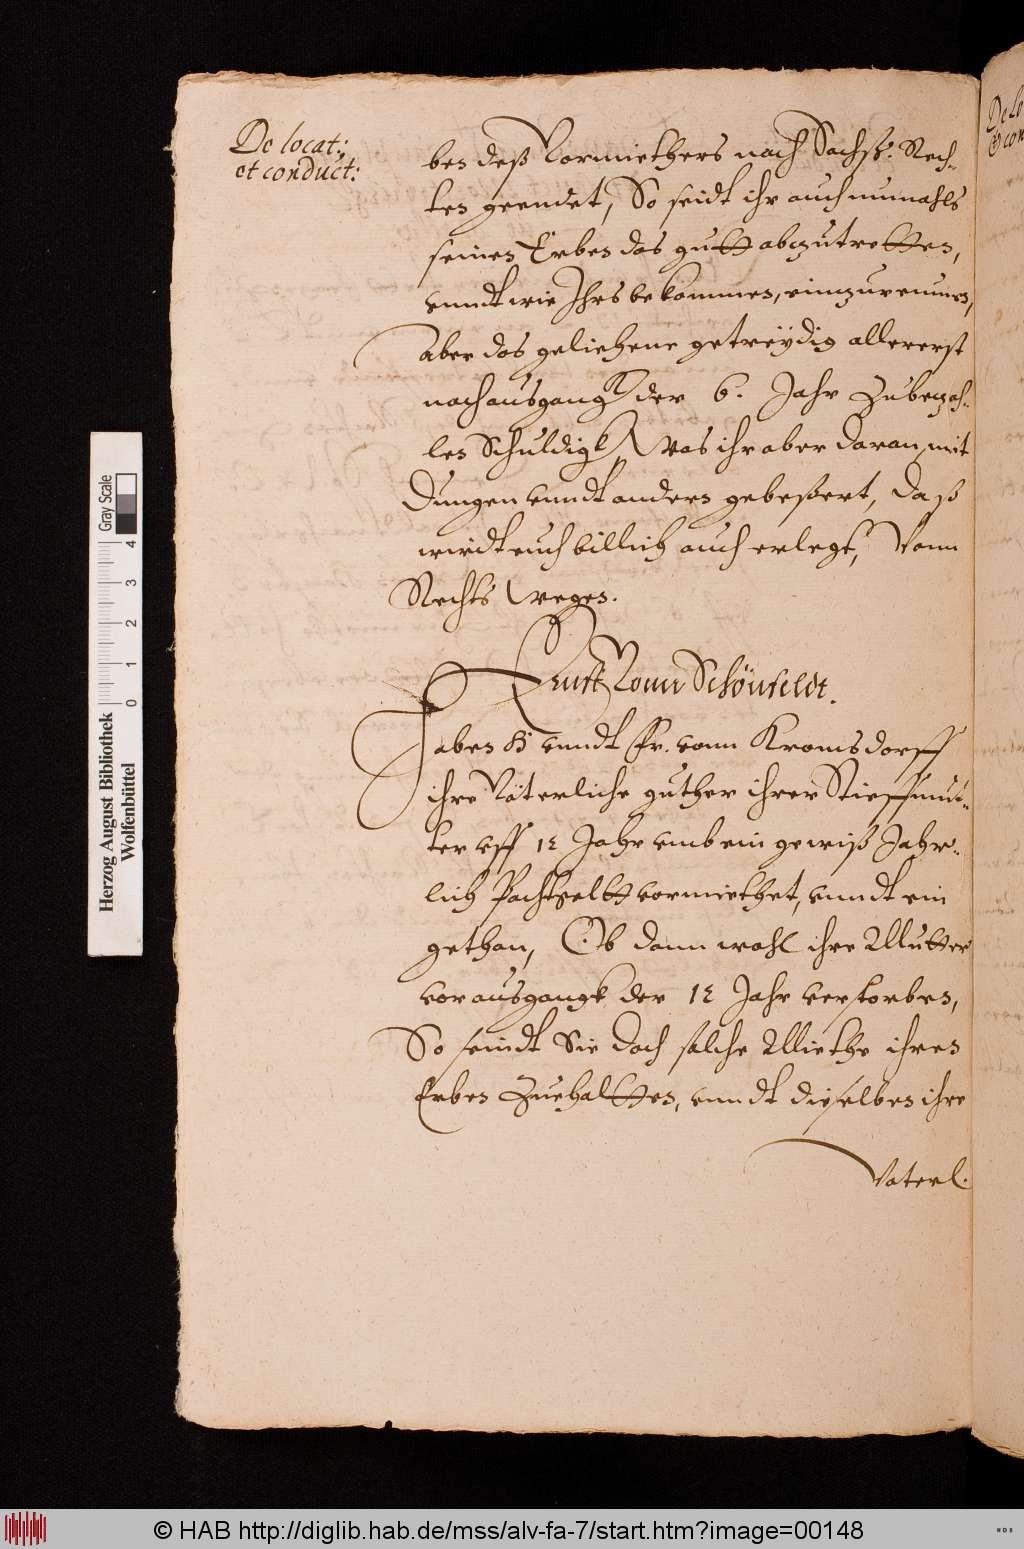 De locat:
et conduct:
ben deß Vormiethers nach Sachß: Rech-
ten geendet, So seidt ihr auch nunmahls
seinen Erben das gutt abzutretten,
vnndt wie Ihrs bekommen, einnzureumen,
aber das geliehene getreÿdig allererst
nach ausgangk der 6. Jahr Zubezah-
len Schuldigk, Was ihr aber daran mit
Dungen vnndt anders gebeßert, Daß
wirdt euch billich auch erlegt, Vonn
Rechts Weges.
Ernst Vonn Schönfeldt.
Haben H vnndt Fr. vonn Kromsdorff
ihre Väterliche guther ihrer Stieffmut-
ter vff 12 Jahr vmb ein gewiß Jahr-
lich Pachtgeltt vormiethet, vnndt ein
gethan, Ob dann wohl ihre Mutter
vor ausgangk der 12 Jahr verstorben,
So seindt Sie doch solche Miethe ihren
Erben Zuehaltten, vnndt dieselben ihre
Vaterl.
De lo
et con
Herzog August Bibliothek
Wolfenbüttel
0 1 2 3 4
Gray Scale
© HAB http://diglib.hab.de/mss/alv-fa-7/start.htm?image=00148